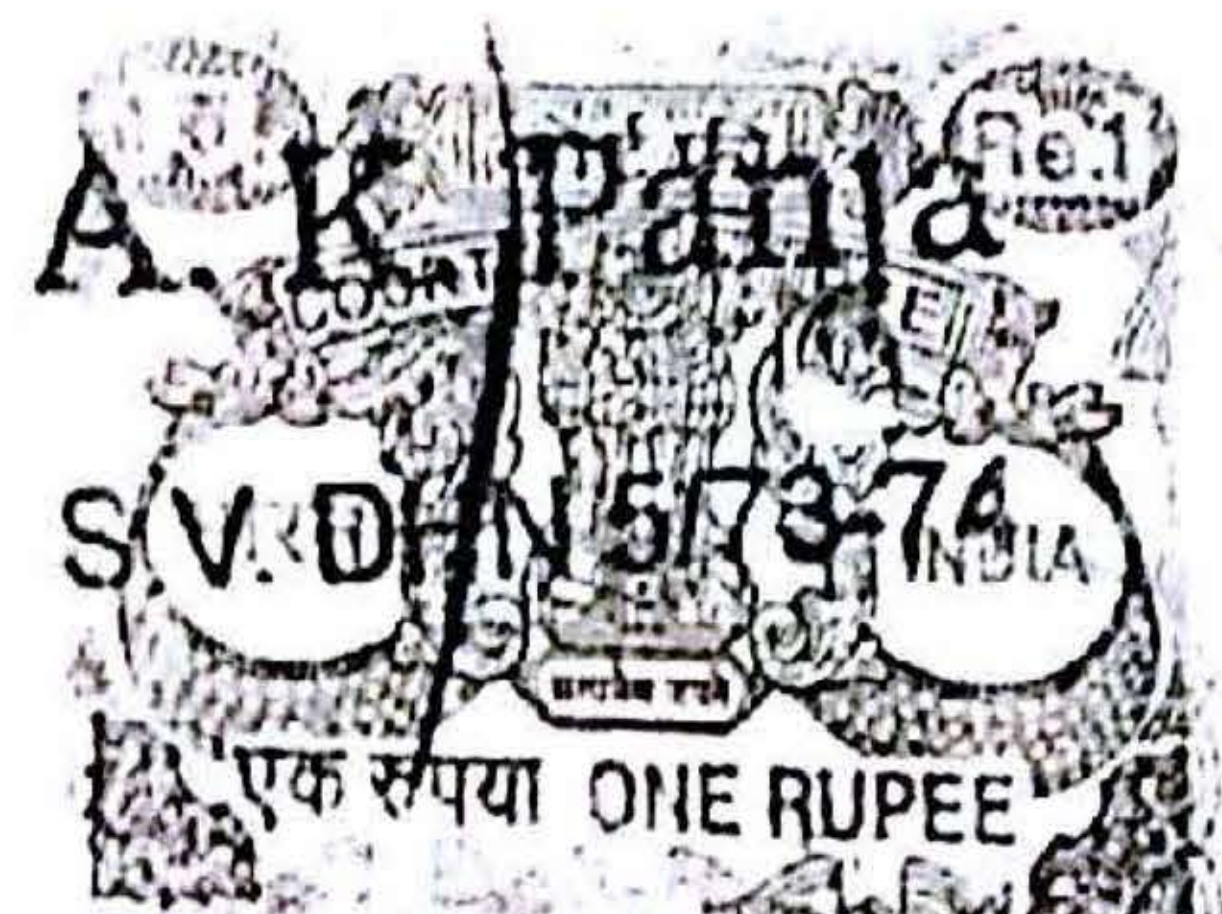 Re.1
A. K Panja
COURT FEE
S.V. DHN 5/73-74
INDIA
सत्यमेव जयते
एक रुपया ONE RUPEE